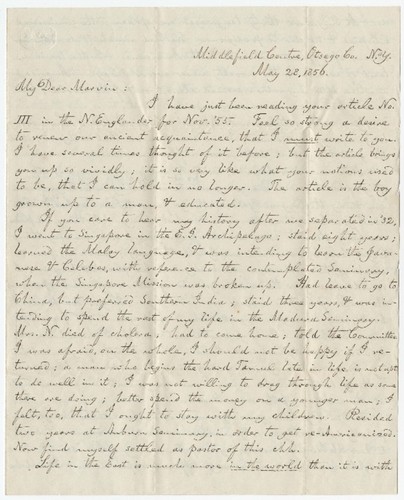 Middlefield Centre, Otsego Co. N.Y.
May 22, 1856.
My Dear Marvin:
I have just been reading your article No.
III in the N. Englander for Nov. '55. Feel so strong a desire
to renew our ancient acquaintance, that I must write to you.
I have several times thought of it before; but the article brings
you up so vividly; it is so very like what your notions used
to be, that I can hold in no longer. The article is the boy
grown up to a man, & educated.
If you care to hear my history after we separated in '32.
I went to Singapore in the E. I. Archipelago; staid eight years;
learned the Malay language, & was intending to learn the Java-
nese & Celebes, with reference to the contemplated Seminary,
when the Singapore Mission was broken up. Had leave to go to
China, but preferred Southern India; staid three years, & was in-
tending to spend the rest of my life in the Madura Seminary.
Mrs. N. died of cholera; had to come home; told the Committee
I was afraid, on the whole, I should not be happy if I re-
turned; a man who begins the hard Tamul late in life is not apt
to do well in it; I was not willing to drag through life as some
there are doing; better spend the money on a younger man; I
felt, too, that I ought to stay with my children. Resided
two years at Auburn Seminary, in order to get re-Americanized.
Now find myself settled as pastor of this chh.
Life in the East is much more in the world than it is with